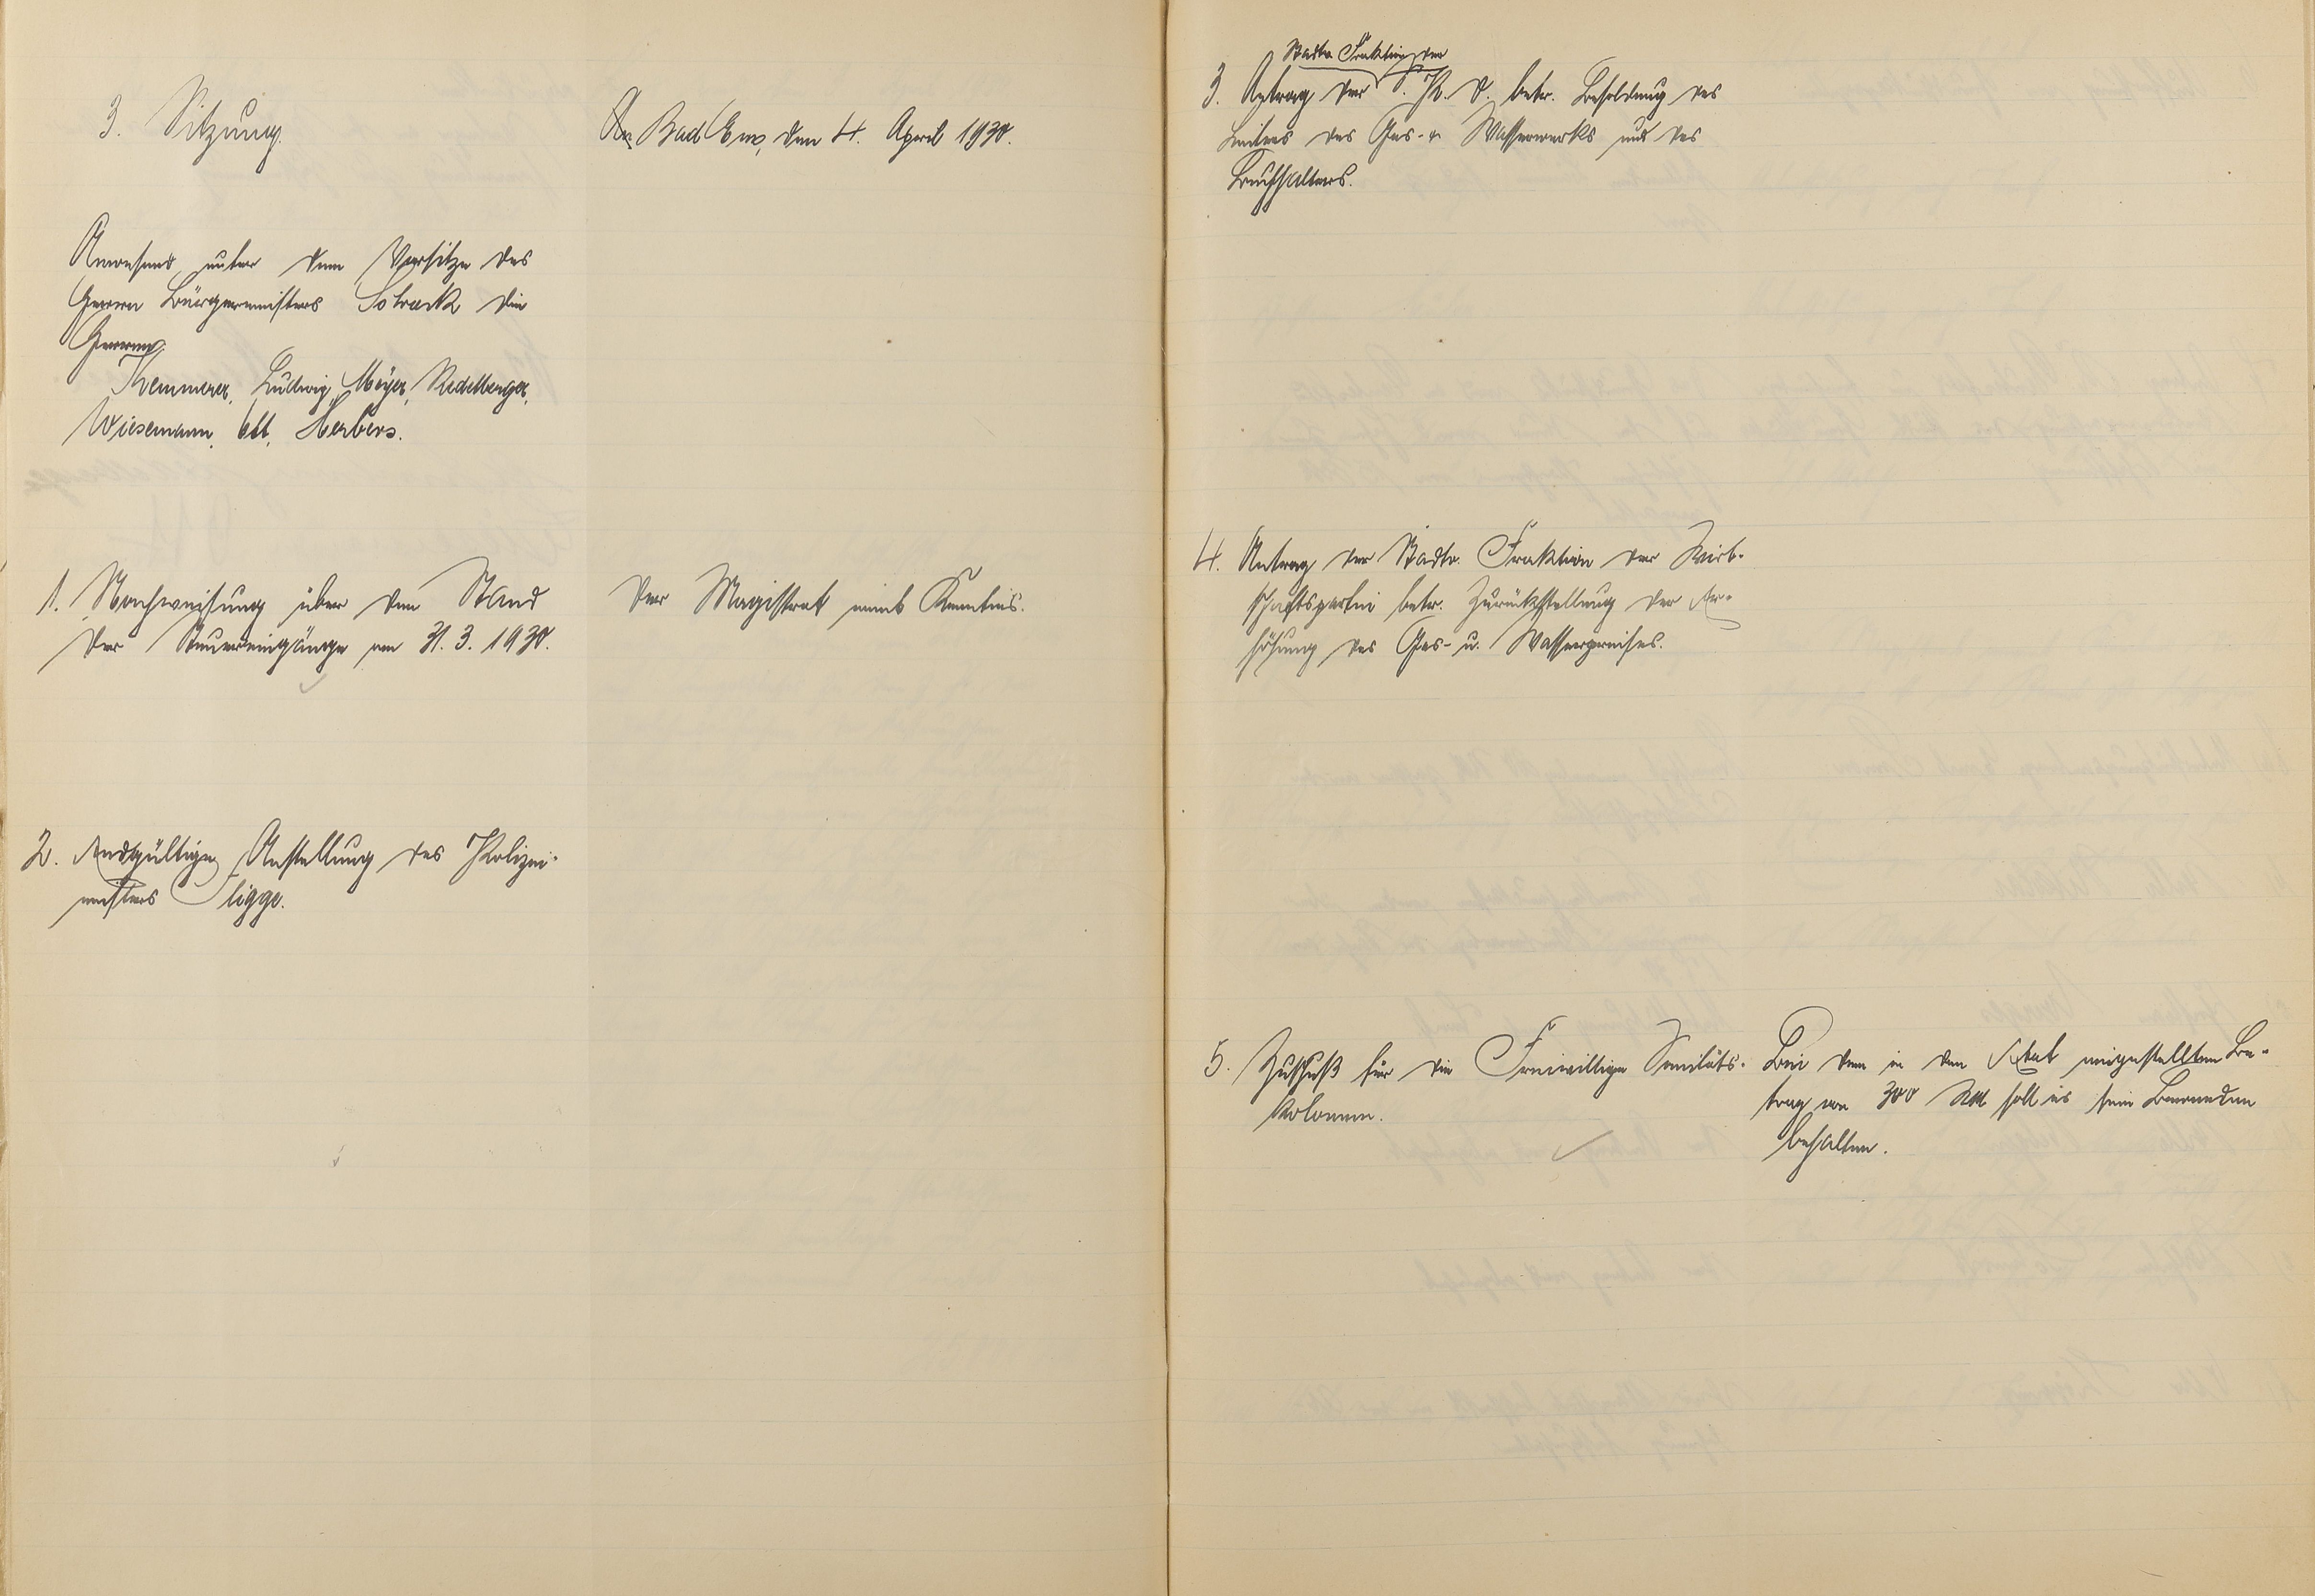 3. Sitzung.
Bad Ems, den 4. April 1930.
Anwesend unter dem Vorsitze des
Herrn Bürgermeisters Schrank die
Herren
Kemmerer, Ludwig, Meyer, Redelberger,
Wiesemann, Ott, Herbers.
1. Nachweisung über den Stand
der Steuereingänge am 31. 3. 1930.
Der Magistrat nimt Kenntnis.
2. Endgültige Anstellung des Polizei-
meisters Fligge.
Stadtv. Fraktion der
3. Antrag der S. P. D. betr. Besoldung des
Leiters des Gas- u. Wasserwerks und des
Buchhalters.
4. Antrag der Stadtv. Fraktion der Wirt-
schaftspartei betr. Zurückstellung der Er-
höhung des Gas- u. Wasserpreises.
5. Zuschuß für die Freiwillige Sanitäts-
kolonne.
Bei dem in den Etat eingestellten Be-
trag von 300 RM soll es sein Bewenden
behalten.